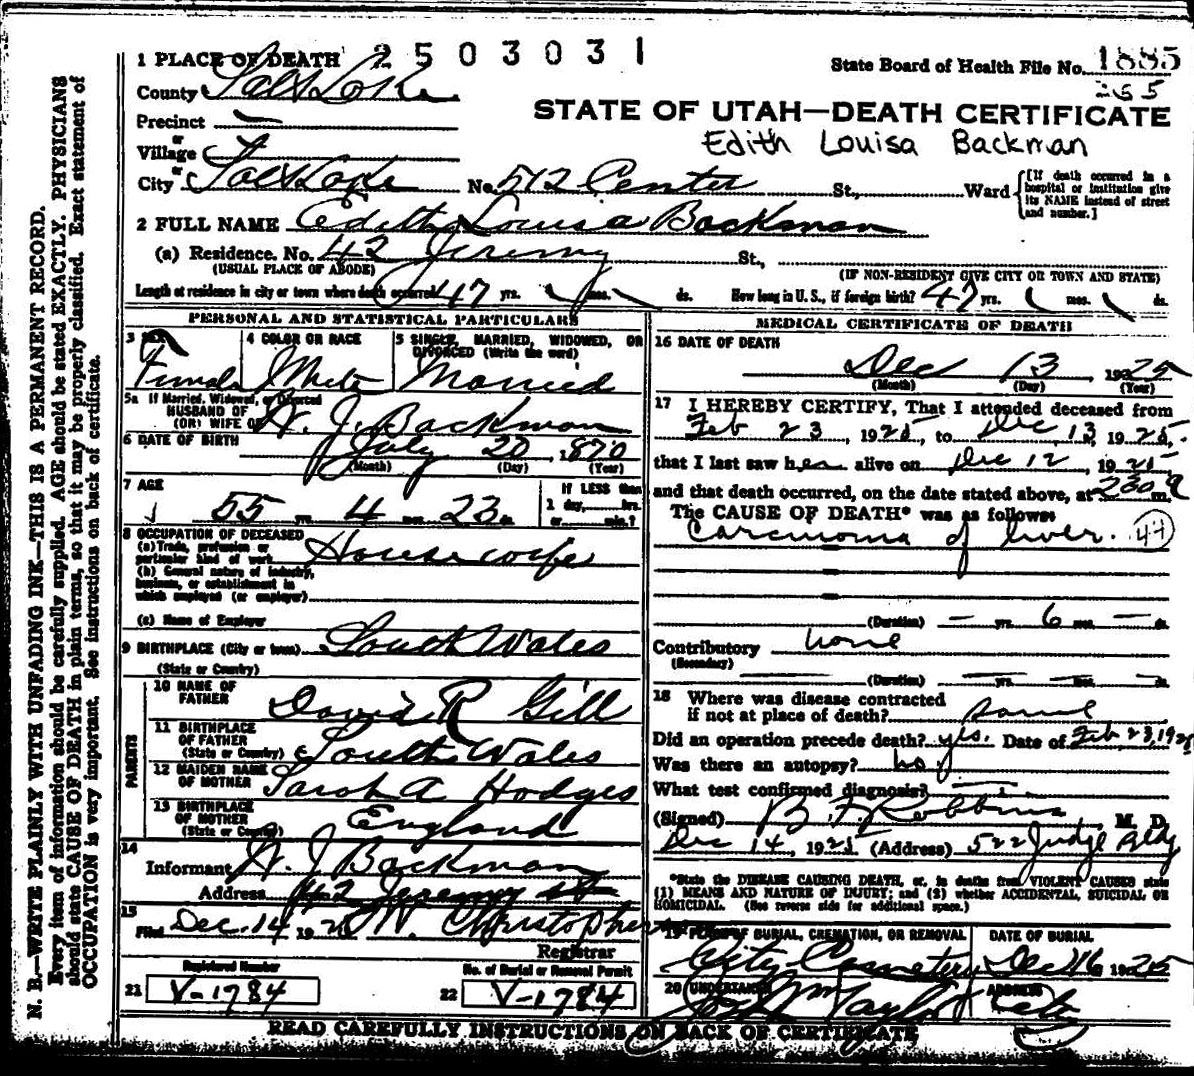 1 PLACE OF DEATH 2503031
State Board of Health File No. 1885
265
County Salt Lake
STATE OF UTAH—DEATH CERTIFICATE
Precinct
Edith Louisa Backman
or
Village
or
City Salt Lake No. 512 Center St., Ward
[If death occurred in a hospital or institution give its NAME instead of street and number.]
2 FULL NAME Edith Louisa Backman
(a) Residence. No. 42 Jeremy St.,
(USUAL PLACE OF ABODE) (IF NON-RESIDENT GIVE CITY OR TOWN AND STATE)
Length of residence in city or town where death occurred 47 yrs. mos. ds. How long in U. S., if foreign birth? 47 yrs. mos. ds.
PERSONAL AND STATISTICAL PARTICULARS
3 SEX
Female
4 COLOR OR RACE
White
5 SINGLE, MARRIED, WIDOWED, OR DIVORCED (Write the word)
Married
5a If Married, Widowed, or Divorced
HUSBAND OF
(OR) WIFE OF J. Backman
6 DATE OF BIRTH July 20, 1870
(Month) (Day) (Year)
7 AGE
55 yrs. 4 mos. 23 ds.
IF LESS than
1 day, hrs.
or min.?
8 OCCUPATION OF DECEASED
(a) Trade, profession or
particular kind of work Housewife
(b) General nature of industry,
business, or establishment in
which employed (or employer)
(c) Name of Employer
9 BIRTHPLACE (City or town) South Wales
(State or Country)
PARENTS
10 NAME OF
FATHER David R Gill
11 BIRTHPLACE
OF FATHER
(State or Country) South Wales
12 MAIDEN NAME
OF MOTHER Sarah A Hodges
13 BIRTHPLACE
OF MOTHER
(State or Country) England
14
Informant J Backman
Address 42 Jeremy St
15
Filed Dec. 14 1925
Registrar
Registered Number
21 V-1784
No. of Burial or Removal Permit
22 V-1784
MEDICAL CERTIFICATE OF DEATH
16 DATE OF DEATH
Dec 13, 1925
(Month) (Day) (Year)
17 I HEREBY CERTIFY, That I attended deceased from
Feb 23, 1925, to Dec, 13, 1925,
that I last saw her alive on Dec 12, 1925
and that death occurred, on the date stated above, at 230 a m.
The CAUSE OF DEATH* was as follows:
Carcinoma of liver. 44
(Duration) — yrs. 6 mos. — ds.
Contributory none
(Secondary)
(Duration) — yrs. — mos. — ds.
18 Where was disease contracted
if not at place of death?
Did an operation precede death? yes. Date of Feb 23, 1925
Was there an autopsy? no
What test confirmed diagnosis?
(Signed) B F Robbins, M. D.
Dec 14, 1925 (Address) 522 Judge Bldg
*State the DISEASE CAUSING DEATH, or, in deaths from VIOLENT CAUSES state
(1) MEANS AND NATURE OF INJURY; and (2) whether ACCIDENTAL, SUICIDAL OR
HOMICIDAL. (See reverse side for additional space.)
19 PLACE OF BURIAL, CREMATION, OR REMOVAL
City Cemetery
DATE OF BURIAL
Dec 16 1925
20 UNDERTAKER
Taylor
ADDRESS
City
READ CAREFULLY INSTRUCTIONS ON BACK OF CERTIFICATE
N. B.—WRITE PLAINLY WITH UNFADING INK—THIS IS A PERMANENT RECORD.
Every item of information should be carefully supplied. AGE should be stated EXACTLY. PHYSICIANS
should state CAUSE OF DEATH in plain terms, so that it may be properly classified. Exact statement of
OCCUPATION is very important. See instructions on back of certificate.